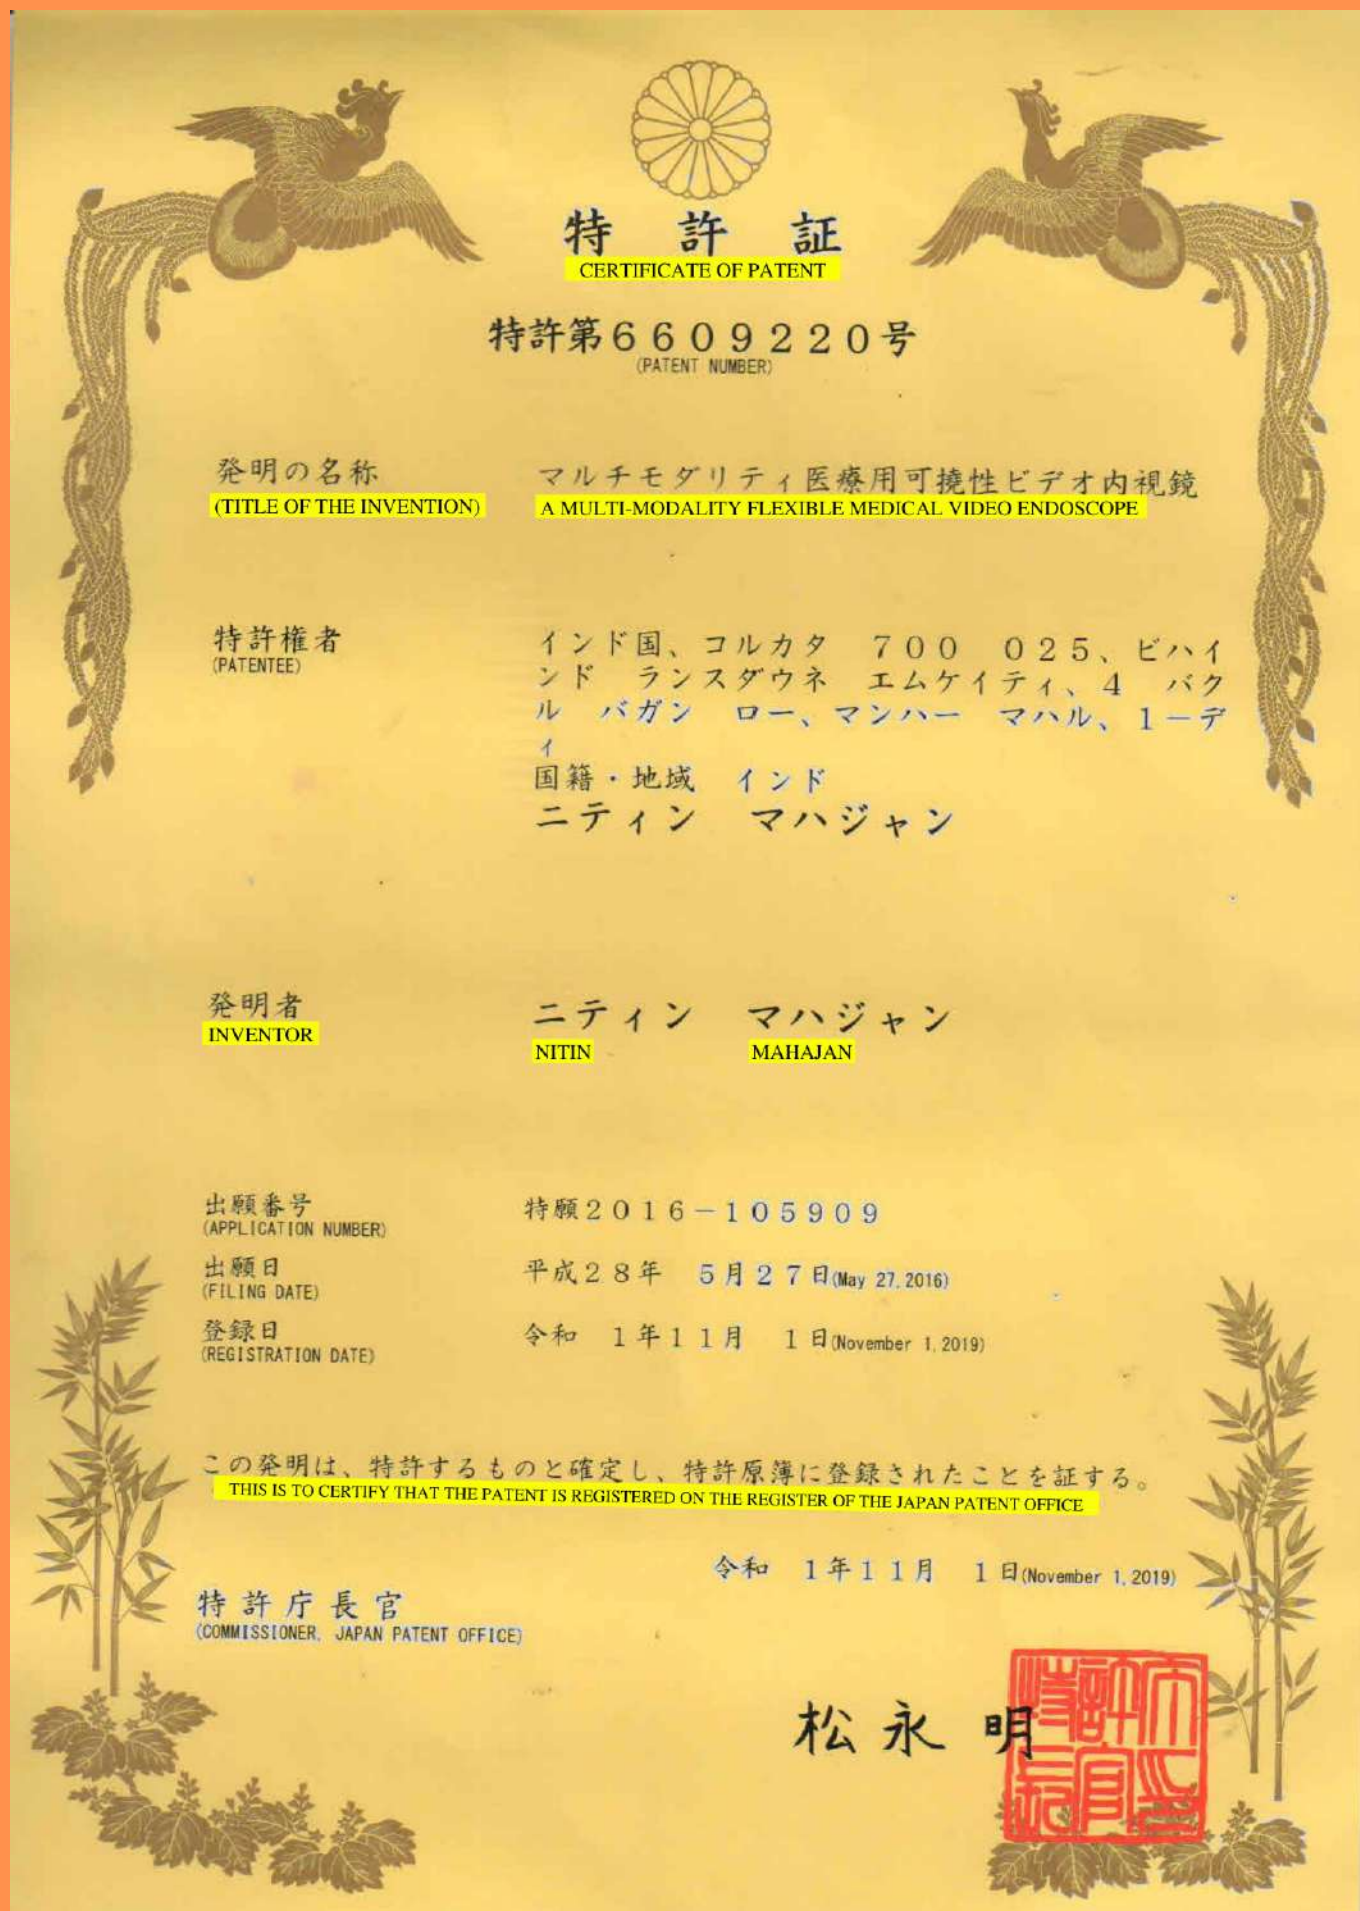 特許証
CERTIFICATE OF PATENT
特許第6609220号
(PATENT NUMBER)
発明の名称
(TITLE OF THE INVENTION)
マルチモダリティ医療用可撓性ビデオ内視鏡
A MULTI-MODALITY FLEXIBLE MEDICAL VIDEO ENDOSCOPE
特許権者
(PATENTEE)
インド国、コルカタ 700 025、ビハイ
ンド ランスダウネ エムケイティ、4 バク
ル バガン ロー、マンハー マハル、1-デ
ィ
国籍・地域 インド
ニティン マハジャン
発明者
INVENTOR
ニティン マハジャン
NITIN MAHAJAN
出願番号
(APPLICATION NUMBER)
特願2016-105909
出願日
(FILING DATE)
平成28年 5月27日(May 27,2016)
登録日
(REGISTRATION DATE)
令和 1年11月 1日(November 1,2019)
この発明は、特許するものと確定し、特許原簿に登録されたことを証する。
THIS IS TO CERTIFY THAT THE PATENT IS REGISTERED ON THE REGISTER OF THE JAPAN PATENT OFFICE
令和 1年11月 1日(November 1,2019)
特許庁長官
(COMMISSIONER, JAPAN PATENT OFFICE)
松永 明